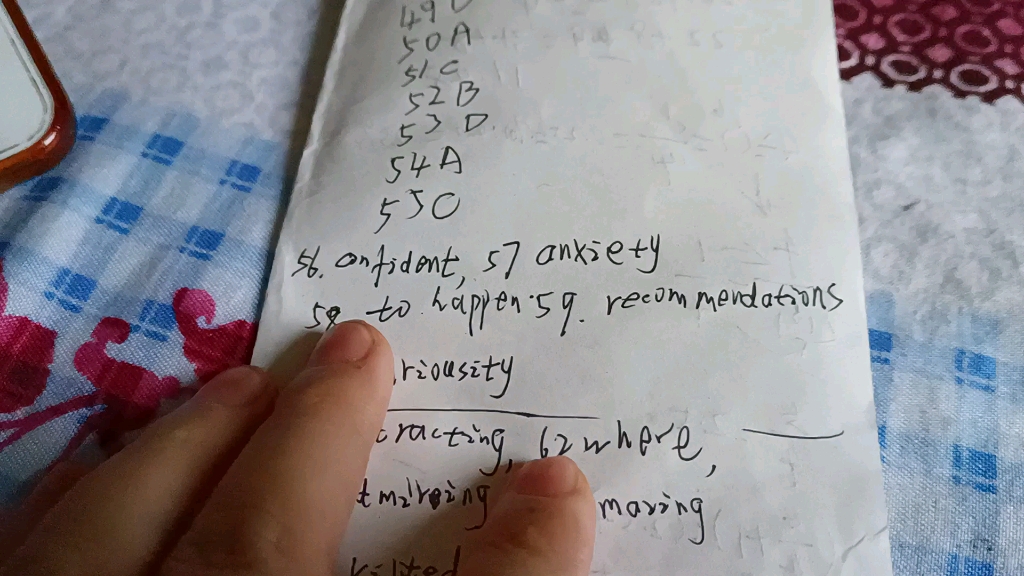 49
50A
51C
52B
53 D
54A
55C
56. onfident, 57 anxiety
58 to happen 59. recommendations
riousity
racting, 62 where,
maring